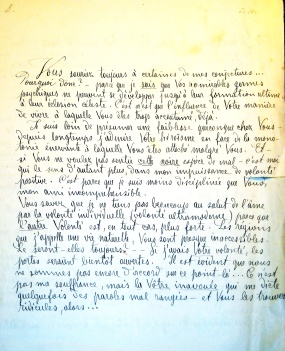 Vous souriez toujours à certaines de mes conjectures...
Pourquoi donc? — parce que je sais que vos nombreux germes
psychiques ne peuvent se développer jusqu'à leur formation ultime
à leur éclosion céleste. C'est ainsi que l'influence de Votre manière
de vivre à laquelle Vous êtes trop accoutumé, déjà.
A suis loin de présumer une faiblesse quelconque chez Vous.
Depuis longtemps j'admire Votre héroïsme en face de la mono-
tonie énervante à laquelle Vous êtes attaché malgré Vous. Et
si Vous ne voulez pas sentir cette noire de mal — c'est moi
qui le sens d'autant plus, dans mon impuissance de volonté
positive. C'est parce que je suis moins discipliné que Vous,
mon ami incompréhensible.
Vous savez que je ne tiens pas beaucoup au salut de l'âme
par la volonté individuelle (volonté ultramoderne) parce que
l'autre Volonté est, en tout cas, plus forte. Les régions
que j'appelle une vie naturelle, Vous sont presque inaccessibles.
Le seront-elles toujours? — Si j'avais Votre volonté, les
portes seraient bientôt ouvertes. Il est évident que nous
ne sommes pas encore d'accord sur ce point-là... Ce n'est
pas ma souffrance, mais la Vôtre qui me dicte
quelquefois des paroles mal rangées — et Vous les trouvez
ridicules, alors...